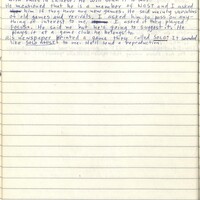 He mentioned that he is a member of NOST and I asked
him if they have any new games. He said mainly variations
of old games and revivals. I asked him to pass on any-
thing of interest to me. I asked if they played
He said no but he's going to suggest its
play at a game club he belongs to.
U.S newspaper printed a game they called It sounded
like to me. Will send a reproduction.